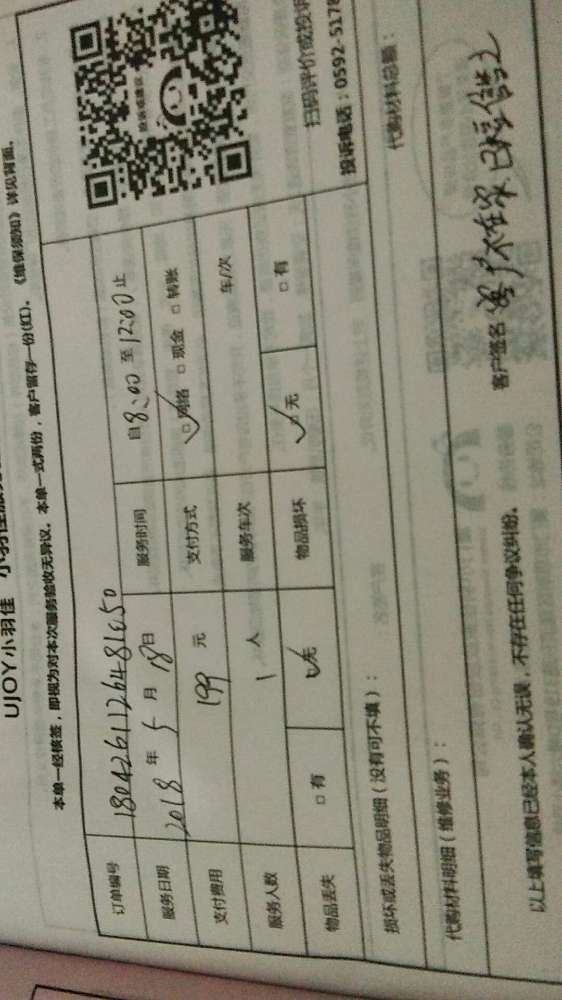 UJOY小羽佳 小羽佳
本单一经核签，即视为对本次服务验收无异议。本单一式两份，客户留存一份(红)。《维保须知》详见背面。
订单编号 1804261126481650
服务日期 2018 年 5 月 18 日 服务时间 自 8:00 至 12:00 止
支付费用 199 元 支付方式 ☑网络 □现金 □转账
服务人数 1 人 服务车次 车/次
物品丢失 □有 ☑无 物品损坏 ☑无 □有
投诉或建议
扫码评价或投诉
投诉电话：0592-5178
损坏或丢失物品明细（没有可不填）：
代购材料明细（维修业务）： 代购材料总额：
以上填写信息已经本人确认无误，不存在任何争议纠纷。 客户签名 不在家